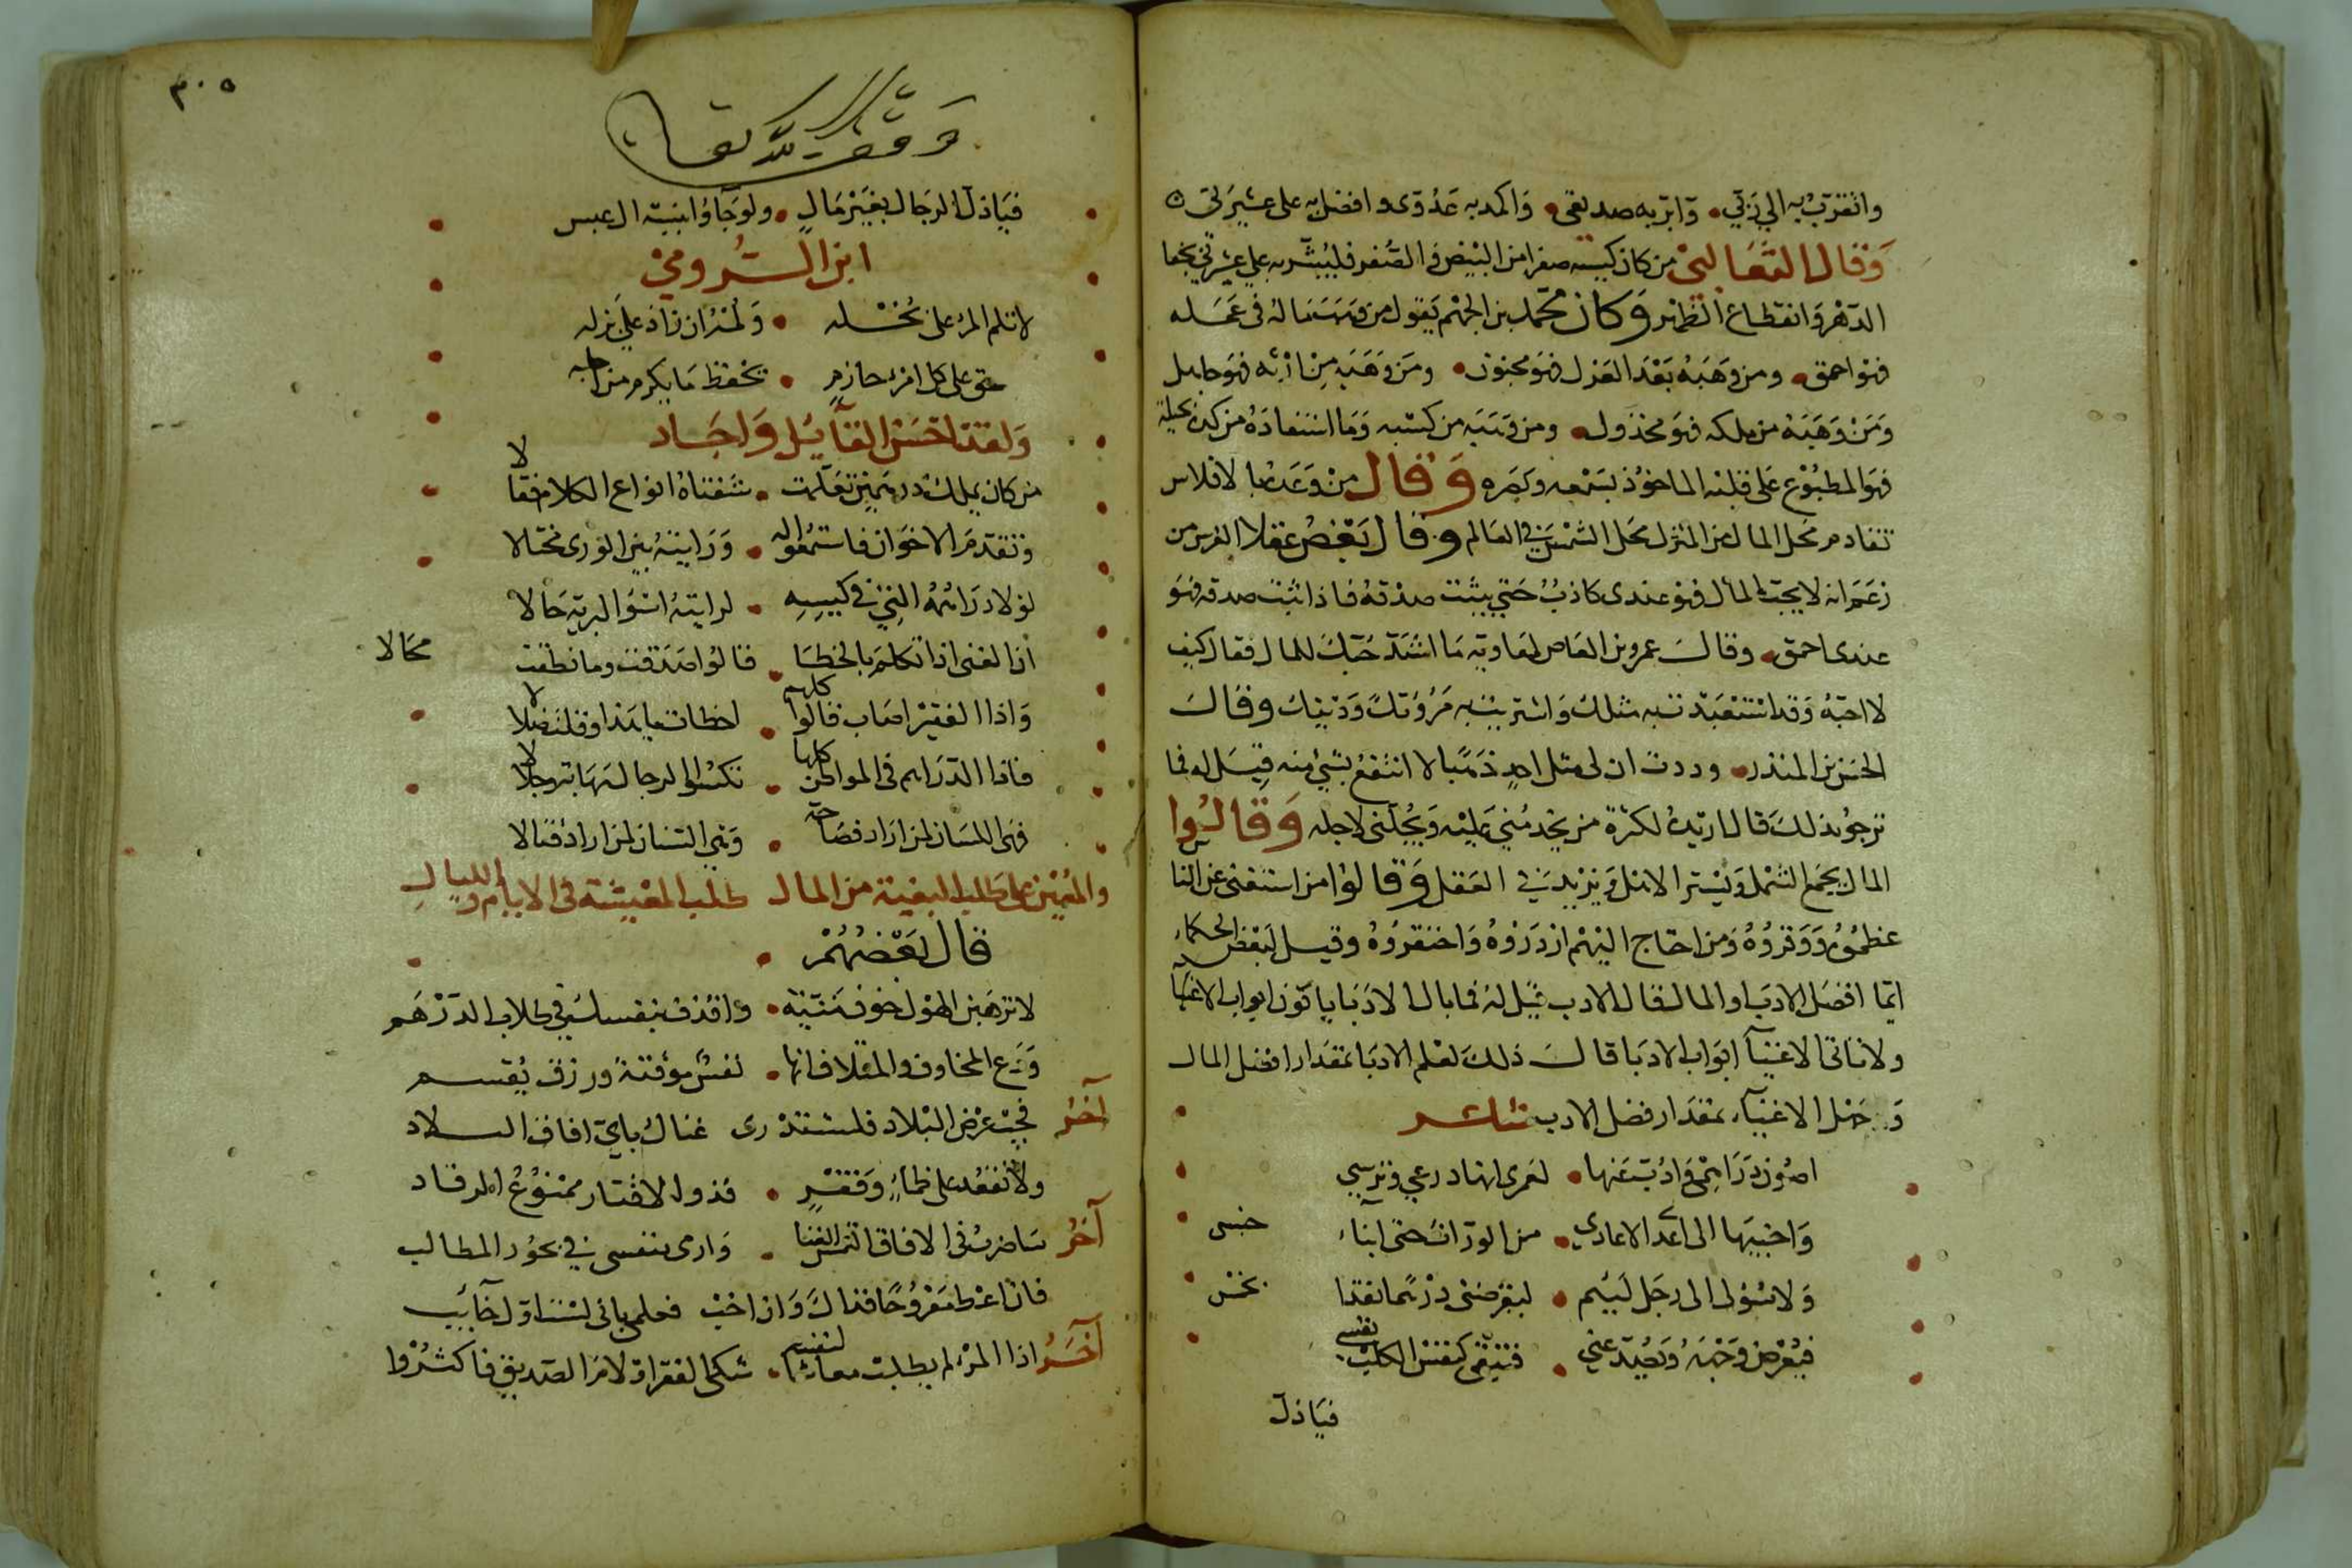 واتقرب به الى ربي وابر به صديقى واكمد به عدوى وافضل به على عشيرتى
وقال الثعالبي من كان كيسه صفرا من البيض والصفر فليبشر به على عشرتي بجفا
الدهر وانقطاع الظهر وكان محمد بن الجهم يقول من وهب ماله فى عمله
فهو احمق ومن وهبه بعد العزل فهو مجنون ومن وهبه من ارثه فهو جاهل
ومن وهبه من ملكه فهو مخذول ومن وهبه من كسبه وما استفاده من كده بحيلة
فهو المطبوع على قلبه الماخوذ بسمعه وبصره وقال من الافلاس
محل المال من المنزل محل الشمس فى العالم وقال بعض عقلا الفرس من
زعم انه لا يحب المال فهو عندى كاذب حتى يثبت صدقه فاذا ثبت صدقه فهو
عندى احمق وقال عمرو بن العاص لمعاوية ما اشد حبك للمال فقال كيف
لا احبه وقد استعبدت به مثلك واشتريت به مروتك ودينك وقال
الحسن بن المنذر وددت ان لى مثل احد ذهبا لا انتفع بشيء منه قيل له فما
ترجو بذلك قال اريده لكثرة من يخدمني عليه ويجلني لاجله وقالوا
المال يجمع الشمل ويستر الاهل ويزيد في العقل وقالوا من استغنى عن الناس
عظموه ووقروه ومن احتاج اليهم ازدروه واحتقروه وقيل لبعض الحكماء
ايما افضل الادب او المال فقال الادب قيل له فما بال الادبا ياتون ابواب الاغنيا
ولا تاتى الاغنيآ ابواب الادبا قال ذلك لعلم الادبا بمقدار افضل المال
وجهل الاغنيآء بمقدار فضل الادب شاعر
اصون دراهمى واذب عنها لعمرى انها درعى وترسي
واخبيها الى اعدا الاعادى من الوراث حتى ابناء جنسى
ولا سؤلى الى رجل لييم ليقرضنى درهما نقدا بخس
فيعرض وجهه ويصد عني فتبقى كنفس الكلب نفسى
فيا ذل
٣٠٥
وقف لله تعا
فيا ذل الرجال بغير مال ولو جاؤا ببنية ال عبس
ابن الرومي
لا تلم المرء على بخله ولمه ان زاد على بذله
حق على كل امرء حازم يحفظ ما يكرم من اجله
ولقد احسن القآيل واجاد
من كان يملك درهمين تعلمت شفتاه انواع الكلام فقالا
وتقدم الاخوان فاستمعوا له ورايته بين الورى مختالا
لولا دراهمه التي في كيسه لرايته اسوا البرية حالا
اذا الغنى اذا تكلم بالخطا قالوا صدقت وما نطقت محالا
واذا الفقير اصاب قالوا كلهم اخطات يا هذا وقلت ضلالا
فاذا الدراهم فى المواطن كلها تكسوا الرجال مهابة وجلالا
فهى اللسان لمن اراد فصاحة وهي السنان لمن اراد قتالا
والمعين على طلب البغية من المال طلب المعيشة فى الايام والليالي
قال بعضهم
لا ترهبن الهول خوف منية واقذف بنفسك في طلاب الدرهم
ودع المخاوف والمقلا فانها نفس موقتة ورزق يقسم
آخر فجب عرض البلاد فلست تدرى غناك باي افاق البلاد
ولا تقعد على ظماء وفقر فذوا الاقتار ممنوع المرقاد
آخر ساضرب فى الافاق التمس الغنا وارمى بنفسى في بحور المطالب
فان اعط مفروحا فذاك وان اخب فعلمى بانى لست اول خآئب
آخر اذا المرء لم يطلب معاشا لنفسه شكى الفقر او لام الصديق فاكثروا